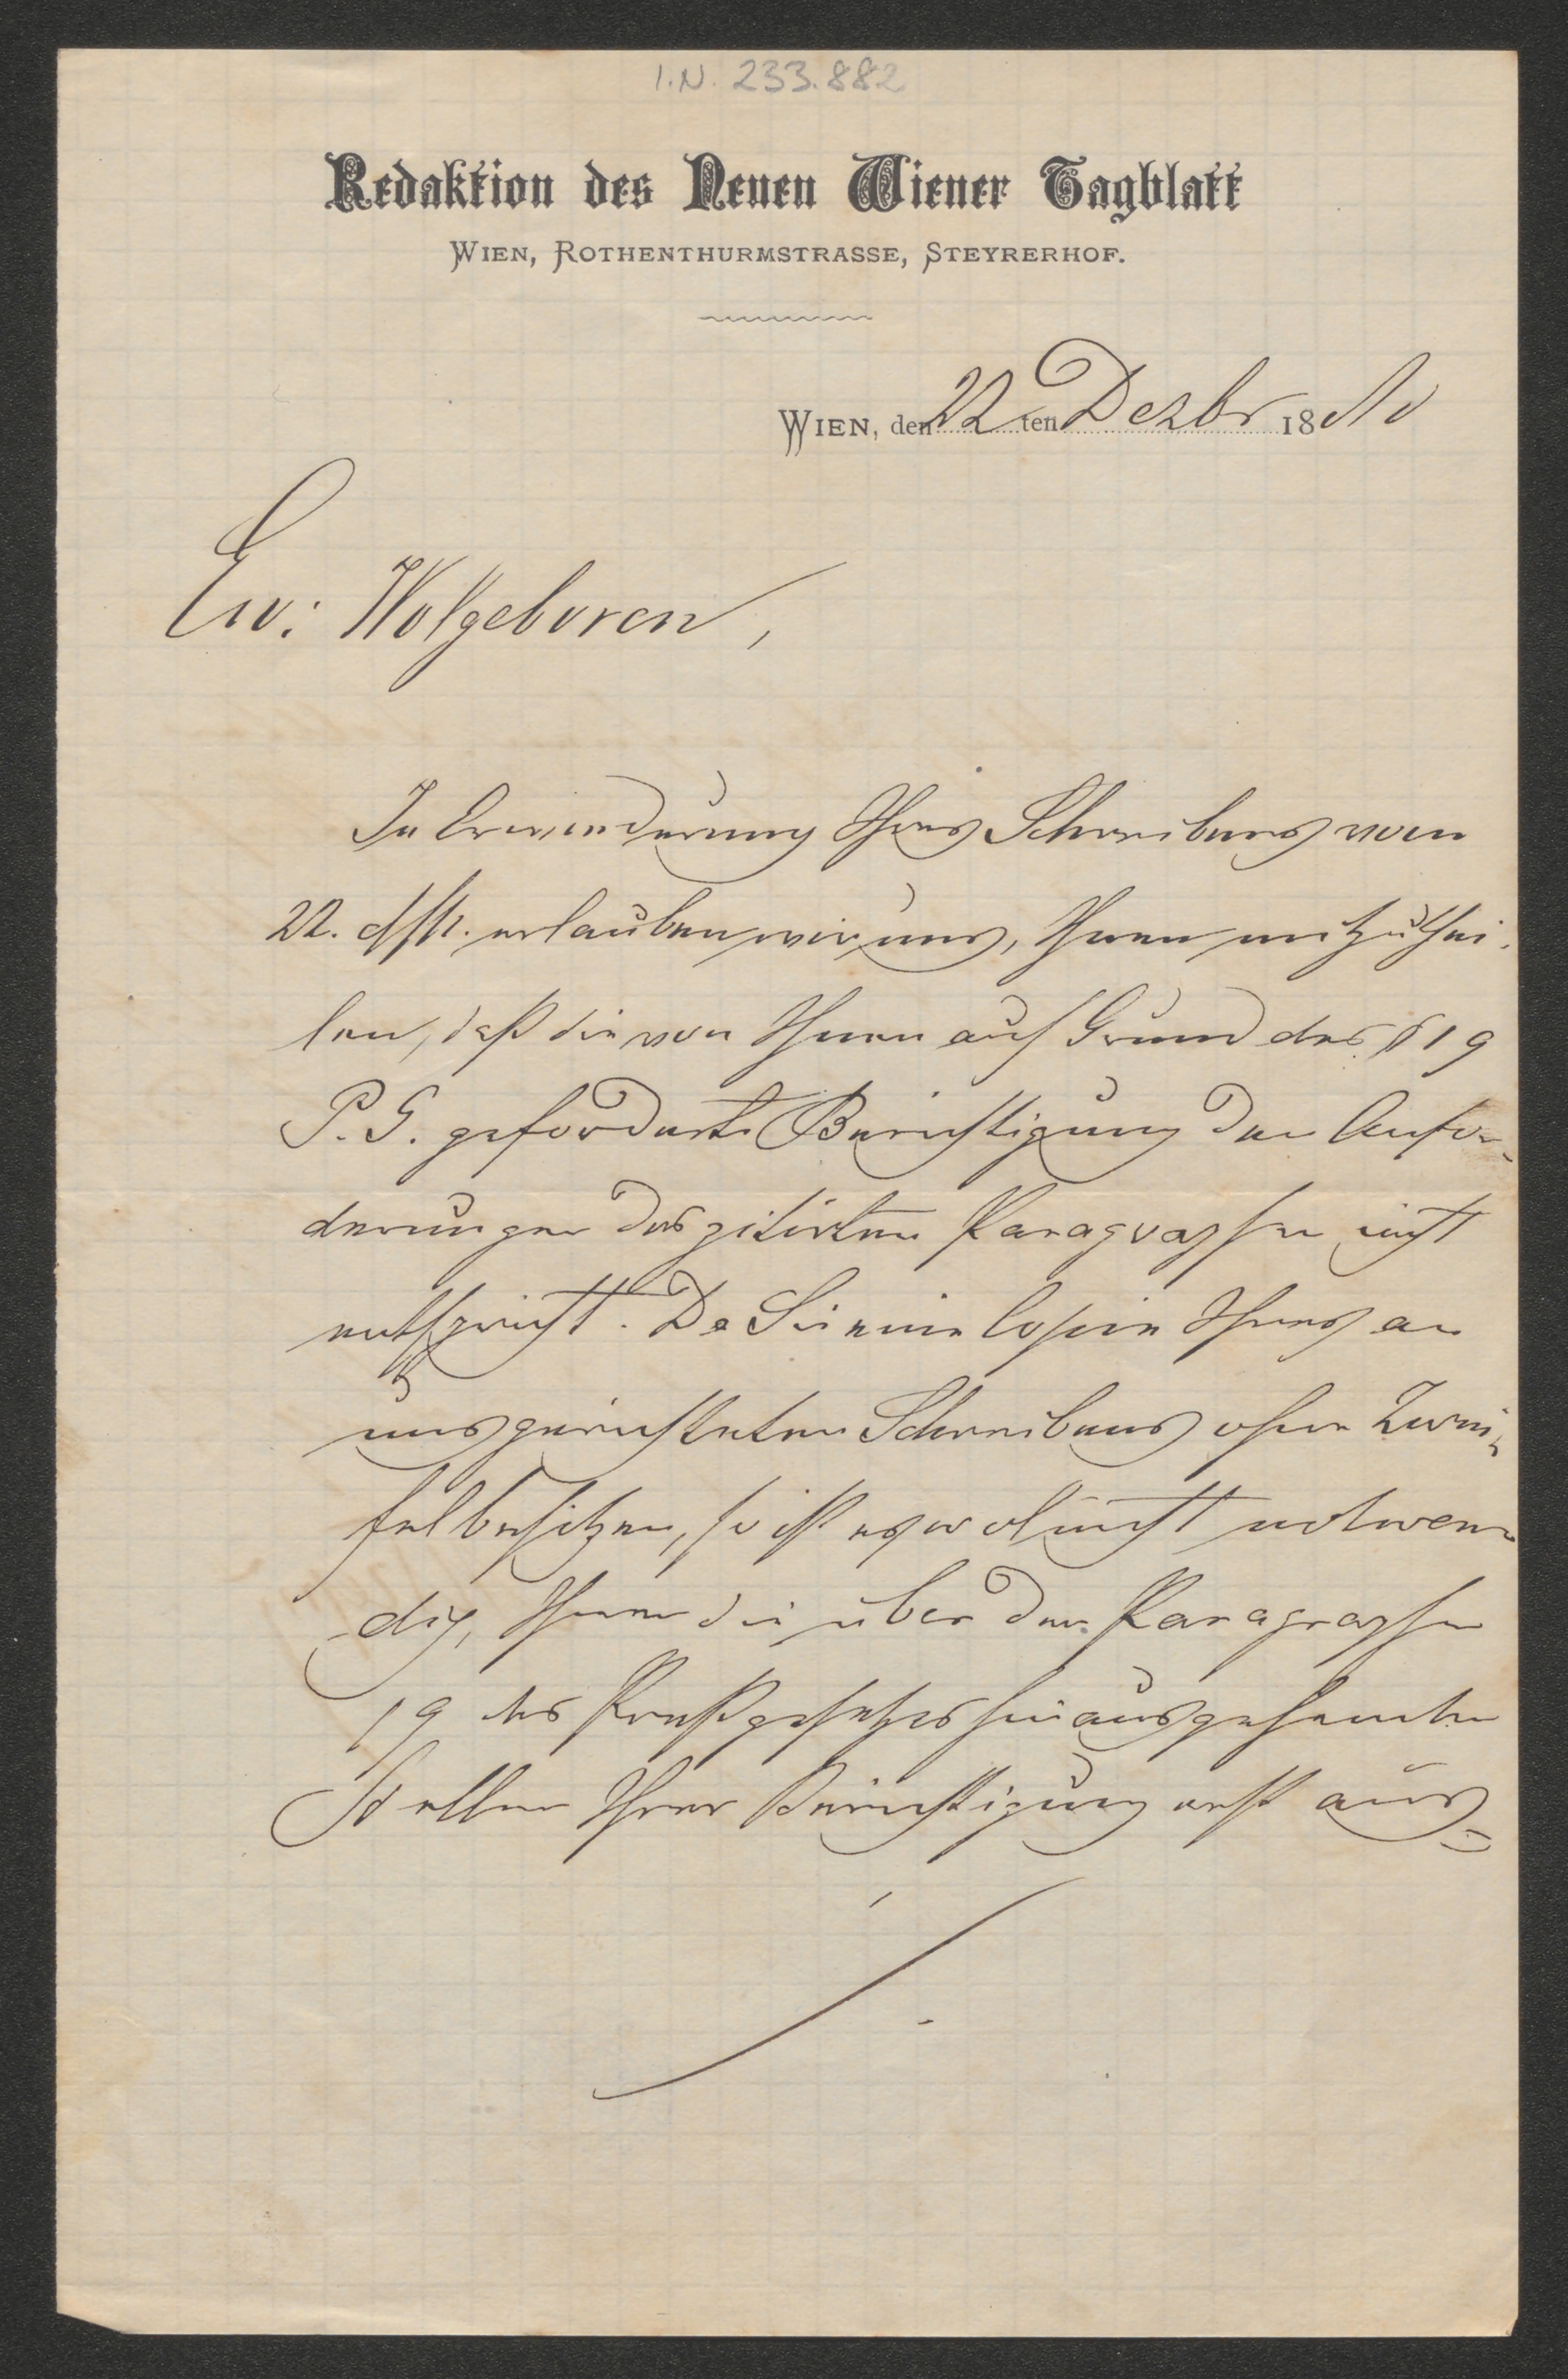 I.N. 233.882
Redaktion des Neuen Wiener Tagblatt
WIEN, ROTHENTHURMSTRASSE, STEYRERHOF.
WIEN, den 22 ten Dezbr 1880
Ew: Wolgeboren,
In Erwiederung Ihres Schreibens vom
22. dss. erlauben wir uns, Ihnen mitzuthei-
len, daß die von Ihnen auf Grund des § 19
P. G. geforderte Berichtigung den Anfor-
derungen des zitirten Paragraphen nicht
entspricht. Da Sie eine Copie Ihres an
uns gerichteten Schreibens ohne Zwei-
fel besitzen, so ist es wol nicht notwen-
dig, Ihnen die über den Paragraphen
19 des Preßgesetzes hinausgehenden
Stellen Ihrer Berichtigung erst aus-